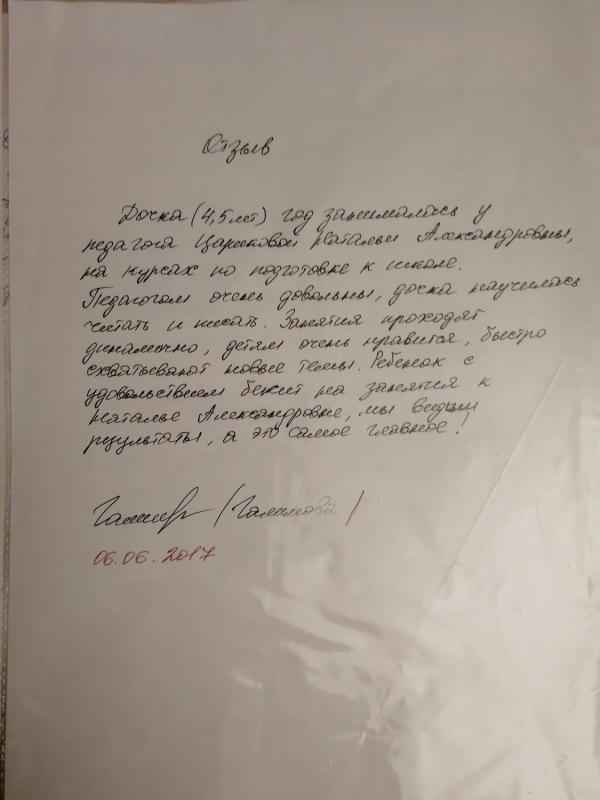 Отзыв
Дочка (4,5 лет) год занималась у
педагога Натальи Александровны,
на курсах по подготовке к школе.
Педагогом очень довольны, дочка научилась
читать и писать. Занятия проходят
динамично, детям очень нравится, быстро
схватывают новые темы. Ребенок с
удовольствием бежит на занятия к
Наталье Александровне, мы видим
результаты, а это самое главное!
/ Галимова /
06.06.2017